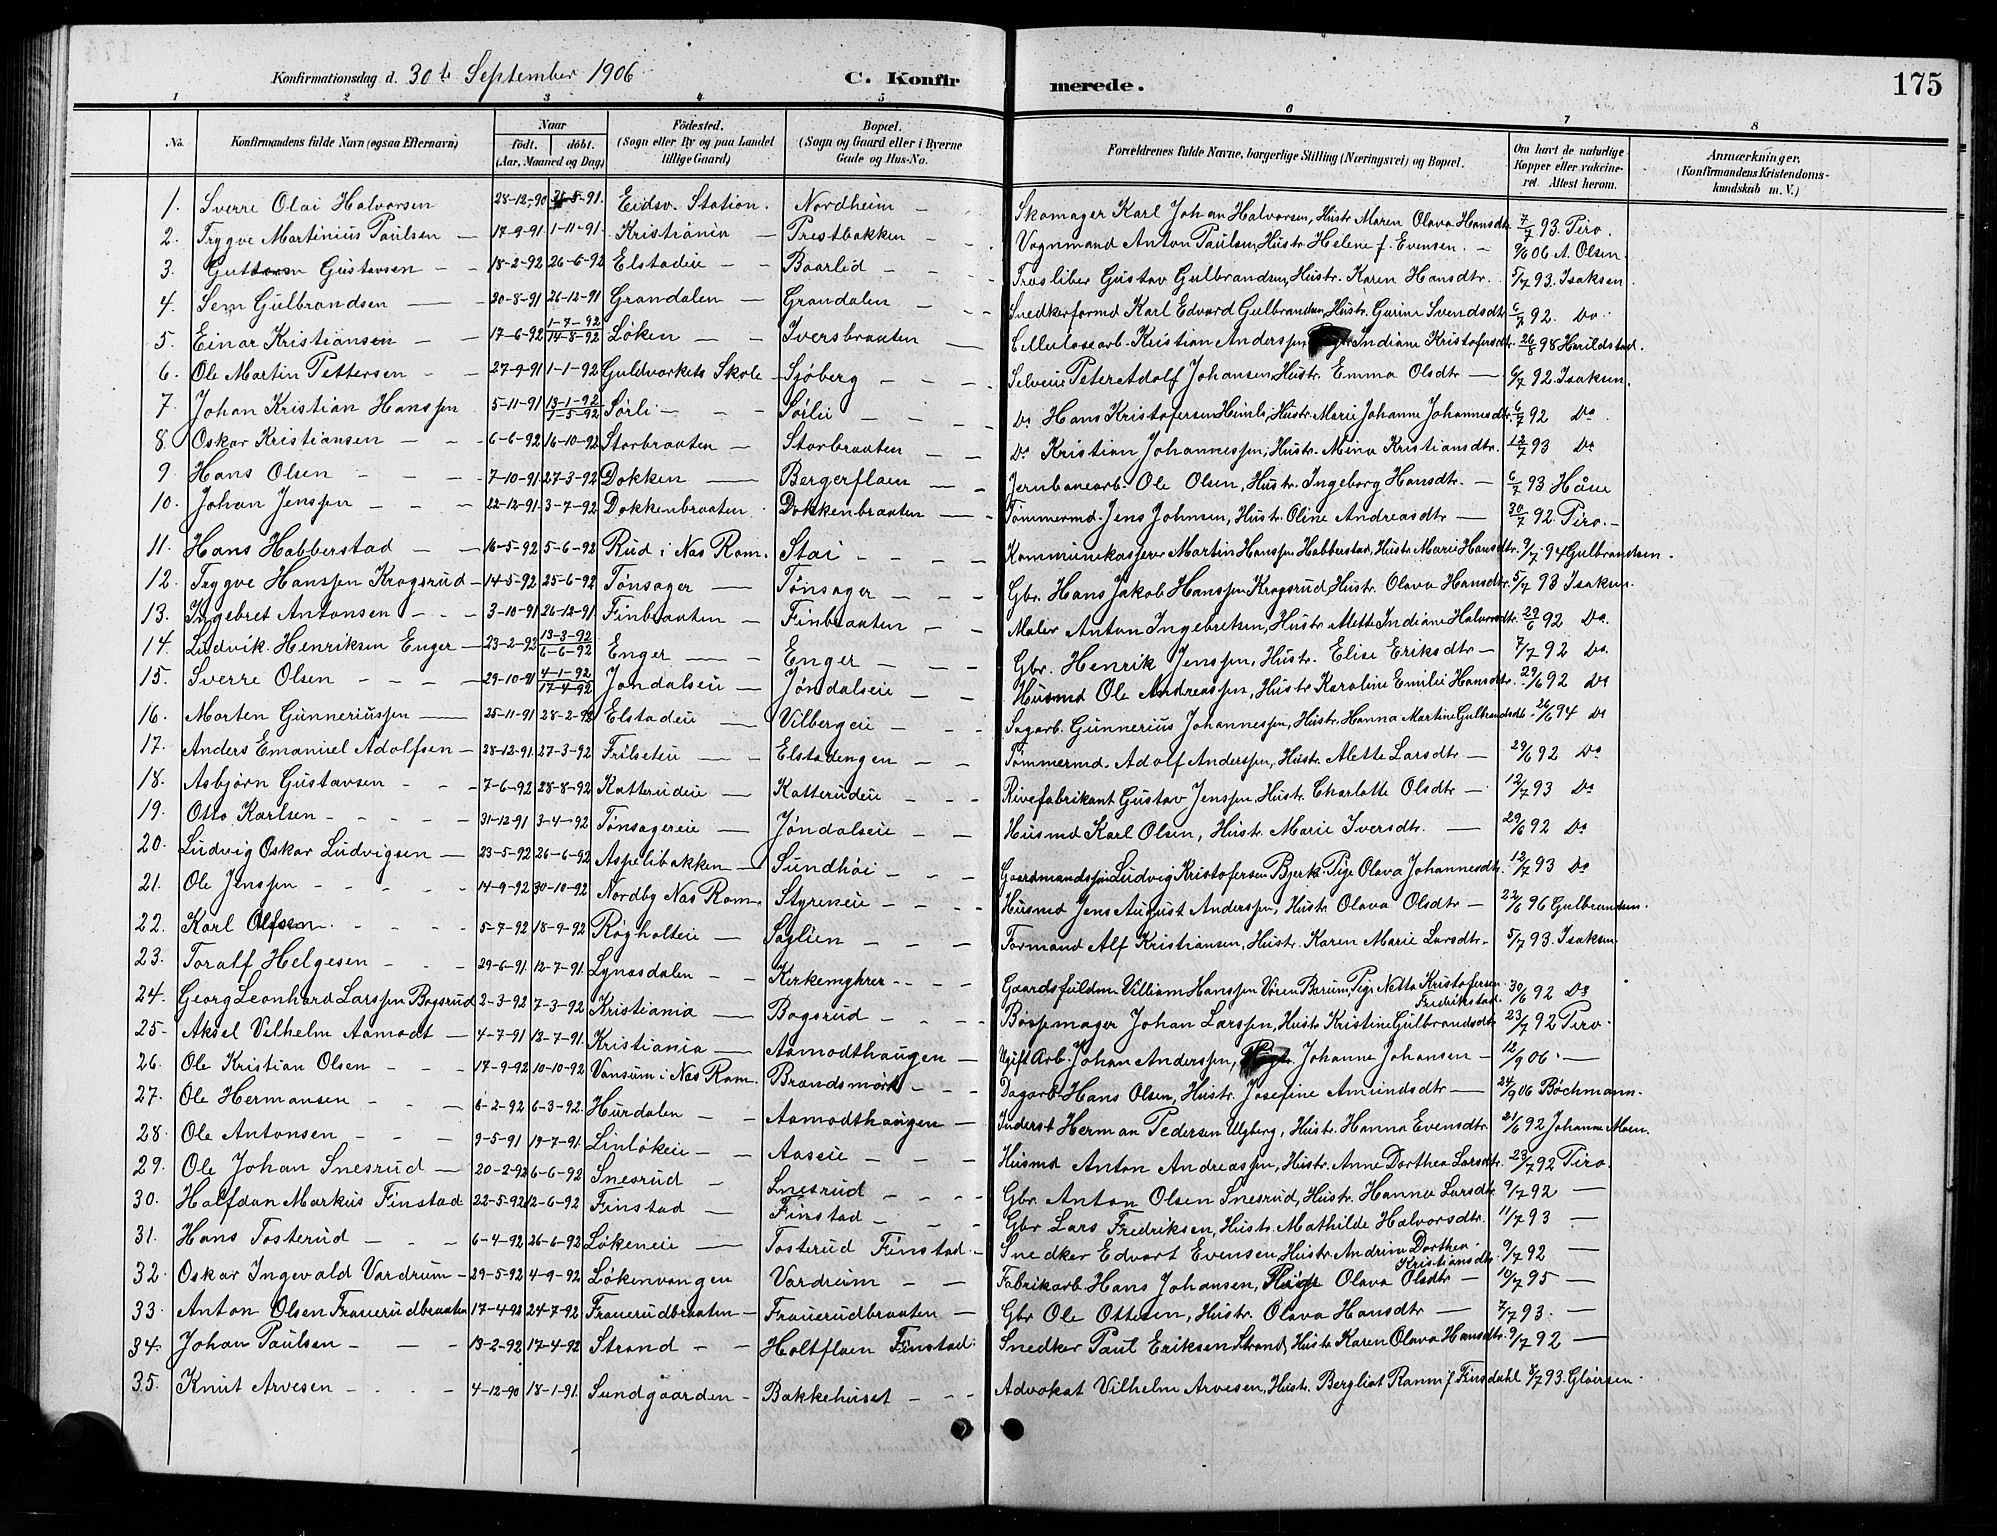 Konfirmationsdag d. 30te September 1906 C. Konfirmerede. 175
1 2 3 4 5 6 7 8
No. Konfirmandens fulde Navn (ogsaa Efternavn) Naar födt. döbt. (Aar, Maaned og Dag) Födested. (Sogn eller By og paa Landet tillige Gaard) Bopæl. (Sogn og Gaard eller i Byerne Gade og Hus-No. Forældrenes fulde Navne, borgerlige Stilling (Næringsvei) og Bopæl. Om havt de naturlige Kopper eller vaccineret. Attest herom. Anmærkninger. (Konfirmandens Kristendomskundskab m. V.)
1. Sverre Olai Halvorsen 28-12-90 31-5-91. Eidsv. Station. Nordheim Skomager Karl Johan Halvorsen, Hustr. Maren Olava Hansdtr. 7/7 93. Piro.
2. Trygve Martinius Paulsen 17-9-91 1-11-91. Kristiania Prestbakken Vognmand Anton Paulsen, Hustr. Helene f. Evensen. 9/6 06 A. Olsen.
3. Guttorm Gustavsen 18-2-92 26-6-92 Elstadeie Baarlid Træsliber Gustav Gulbrandsen, Hustr. Karen Hansdtr. 5/7 93. Isaksen.
4. Sem Gulbrandsen 20-8-91 26-12-91 Grandalen Grandalen Snedkerformd Karl Edvard Gulbrandsen, Hustr. Gurine Svendsdtr. 6/7 92. Do.
5. Einar Kristiansen 17-6-92 1-7-92 14-8-92 Løken Iversbraaten Cellulosearb. Kristian Anderssen Indiane Kristofersdtr. 26/8 98 Harildstad.
6. Ole Martin Pettersen 27-9-91 1-1-92 Guldværkets Skole Sjøberg Selveier Peter Adolf Johansen, Hustr. Emma Olsdtr 6/7 92. Isaksen.
7. Johan Kristian Hanssen 5-11-91 13-1-92 1-5-92 Sørli Sørlie Do Hans Kristofersen Heimli, Hustr. Marie Johanne Johannesdtr. 6/7 92 Do.
8. Oskar Kristiansen 6-6-92 16-10-92 Storbraaten Storbraaten Do. Kristian Johannessen, Hustr. Mina Kristiansdtr. 12/7 93 Do
9. Hans Olsen 7-10-91 27-3-92 Dokken Bergerflaen Jernbanearb. Ole Olsen, Hustr. Ingeborg Hansdtr. 6/7 93 Håue
10. Johan Jenssen 22-12-91 3-7-92 Dokkenbraaten Dokkenbraaten Tømmermd. Jens Johnsen, Hustr. Oline Andreasdtr 30/7 92. Piro.
11. Hans Habberstad 16-5-92 5-6-92 Rud i Nas Rom. Stai Kommunekasjerer Martin Hanssen Habberstad, Hustr. Marie Hansdtr. 9/7. 94 Gulbrandsen.
12. Trygve Hanssen Krogsrud 14-5-92 25-6-92 Tønsager Tønsager Gbr. Hans Jakob Hanssen Krogsrud, Hustr. Olava Hansdtr. 5/7 93 Isaksen.
13. Ingebret Antonsen 3-10-91 26-12-91 Finbraaten Finbraaten Maler Anton Ingebretsen, Hustr. Mette Indiane Halvorsdtr. 29/6 92 Do.
14. Ludvik Henriksen Enger 23-2-92 13-3-92 6-6-92 Enger Enger Gbr. Henrik Jenssen, Hustr. Elise Eriksdtr 7/7 92 Do.
15. Sverre Olsen 29-10-91 4-1-92 17-4-92 Jøndalseie Jøndalseie Husmd Ole Andreassen, Hustr. Karoline Emilie Hansdtr. 29/6 92 Do
16. Morten Gunneriussen 25-11-91 28-2-92 Elstadeie Vilbergeie Sagarb. Gunnerius Johannessen, Hustr. Hanna Martine Gulbrandsdtr. 26/6 94 Do
17. Anders Emanuel Adolfsen 28-12-91. 27-3-92 Frilseteie Elstadengen Tømmermd. Adolf Anderssen, Hustr. Alette Larsdtr 29/6 92 Do
18. Asbjørn Gustavsen 7-6-92 28-8-92 Katterudeie Katterudeie Rivefabrikant Gustav Jenssen, Hustr. Charlotte Olsdtr 12/7 93 Do
19. Otto Karlsen 31-12-91 3-4-92 Tønsagereie Jøndalseie Husmd Karl Olsen, Hustr. Marie Iversdtr. 29/6 92 Do
20. Ludvig Oskar Ludvigsen 23-5-92 26-6-92 Aspelibakken Sundhøi Gaardmandssøn Ludvig Kristofersen Bjerk, Pige Olava Johannesdtr. 12/7 93 Do
21. Ole Jenssen 14-9-92 30-10-92 Nordby Nas Rom. Styrieie Husmd Jens August Anderssen, Hustr. Olava Olsdtr 22/6 96 Gulbrandsen.
22. Karl Alfsen 5-7-92 18-9-92 Rogholteie Saglien Formand Alf Kristiansen, Hustr. Karen Marie Larsdtr. 5/7 93. Isaksen
23. Toralf Helgesen 29-6-91. 12-7-91. Lynasdalen Kirkemyhrer Gaardsfuldm Villiam Hanssen Vøien Bærum, Pige Netta Kristofersen Fredrikstad. 30/6 92 Do
24. Georg Leonhard Larssen Bogsrud 2-3-92 7-3-92 Kristiania Bogsrud Bøssemager Johan Larssen, Hustr Kristine Gulbrandsdtr. 23/7 92 Piro.
25. Aksel Vilhelm Aamodt 4-7-91 12-7-91. Kristiania Aamodthaugen Ugift Arb. Johan Anderssen, Pige Johanne Johansen 12/9 06.
26. Ole Kristian Olsen 17-9-92 10-10-92 Vansum i Nas Rom. Brandsmørk Dagarb. Hans Olsen, Hustr. Josefine Amundsdtr 24/9 06 Bøchmann.
27. Ole Hermansen 6-2-92 6-3-92. Hurdalen Aamodthaugen Inderst Herman Pedersen Ulsberg, Hustr. Hanna Evensdtr. 21/6 92 Johanne Moen.
28. Ole Antonsen 9-5-91 19-7-91. Linløkeie Aaseie Husmd Anton Andreassen, Hustr. Anne Dorthea Larsdtr. 23/7 92 Piro.
29. Ole Johan Snesrud 20-2-92 6-6-92 Snesrud Snesrud Gbr. Anton Olsen Snesrud, Hustr. Hanna Larsdtr. 9/7 92
30. Halfdan Markus Finstad 22-5-92 12-6-92 Finstad Finstad Gbr Lars Fredriksen, Hustr. Mathilde Halvorsdtr. 11/7 93
31. Hans Tosterud 6-4-92 26-6-92 Løkeneie Tosterud Finstad Snedker Edvart Evensen, Hustr. Andrine Dorthea Kristiansdtr. 9/7 92
32. Oskar Ingevald Vardrum 29-5-92 4-9-92 Løkenvangen Vardrum Fabrikarb Hans Johansen, Pige Olava Olsdtr 10/7 95
33. Anton Olsen Frauerudbraaten 17-4-92 24-7-92 Frauerudbraaten Frauerudbraaten Gbr Ole Ottesen, Hustr. Olava Hansdtr 7/7 93.
34. Johan Paulsen 13-2-92 17-4-92 Strand Holtflaen Finstad. Snedker Paul Eriksen Strand, Hustr Karen Olava Hansdtr. 9/7 92
35. Knut Arvesen 4-12-90 18-1-91. Sundgaarden Bakkehuset Advokat Vilhelm Arvesen, Hustr. Bergliot Ranni f Finsdahl 8/7 93. Gløersen.